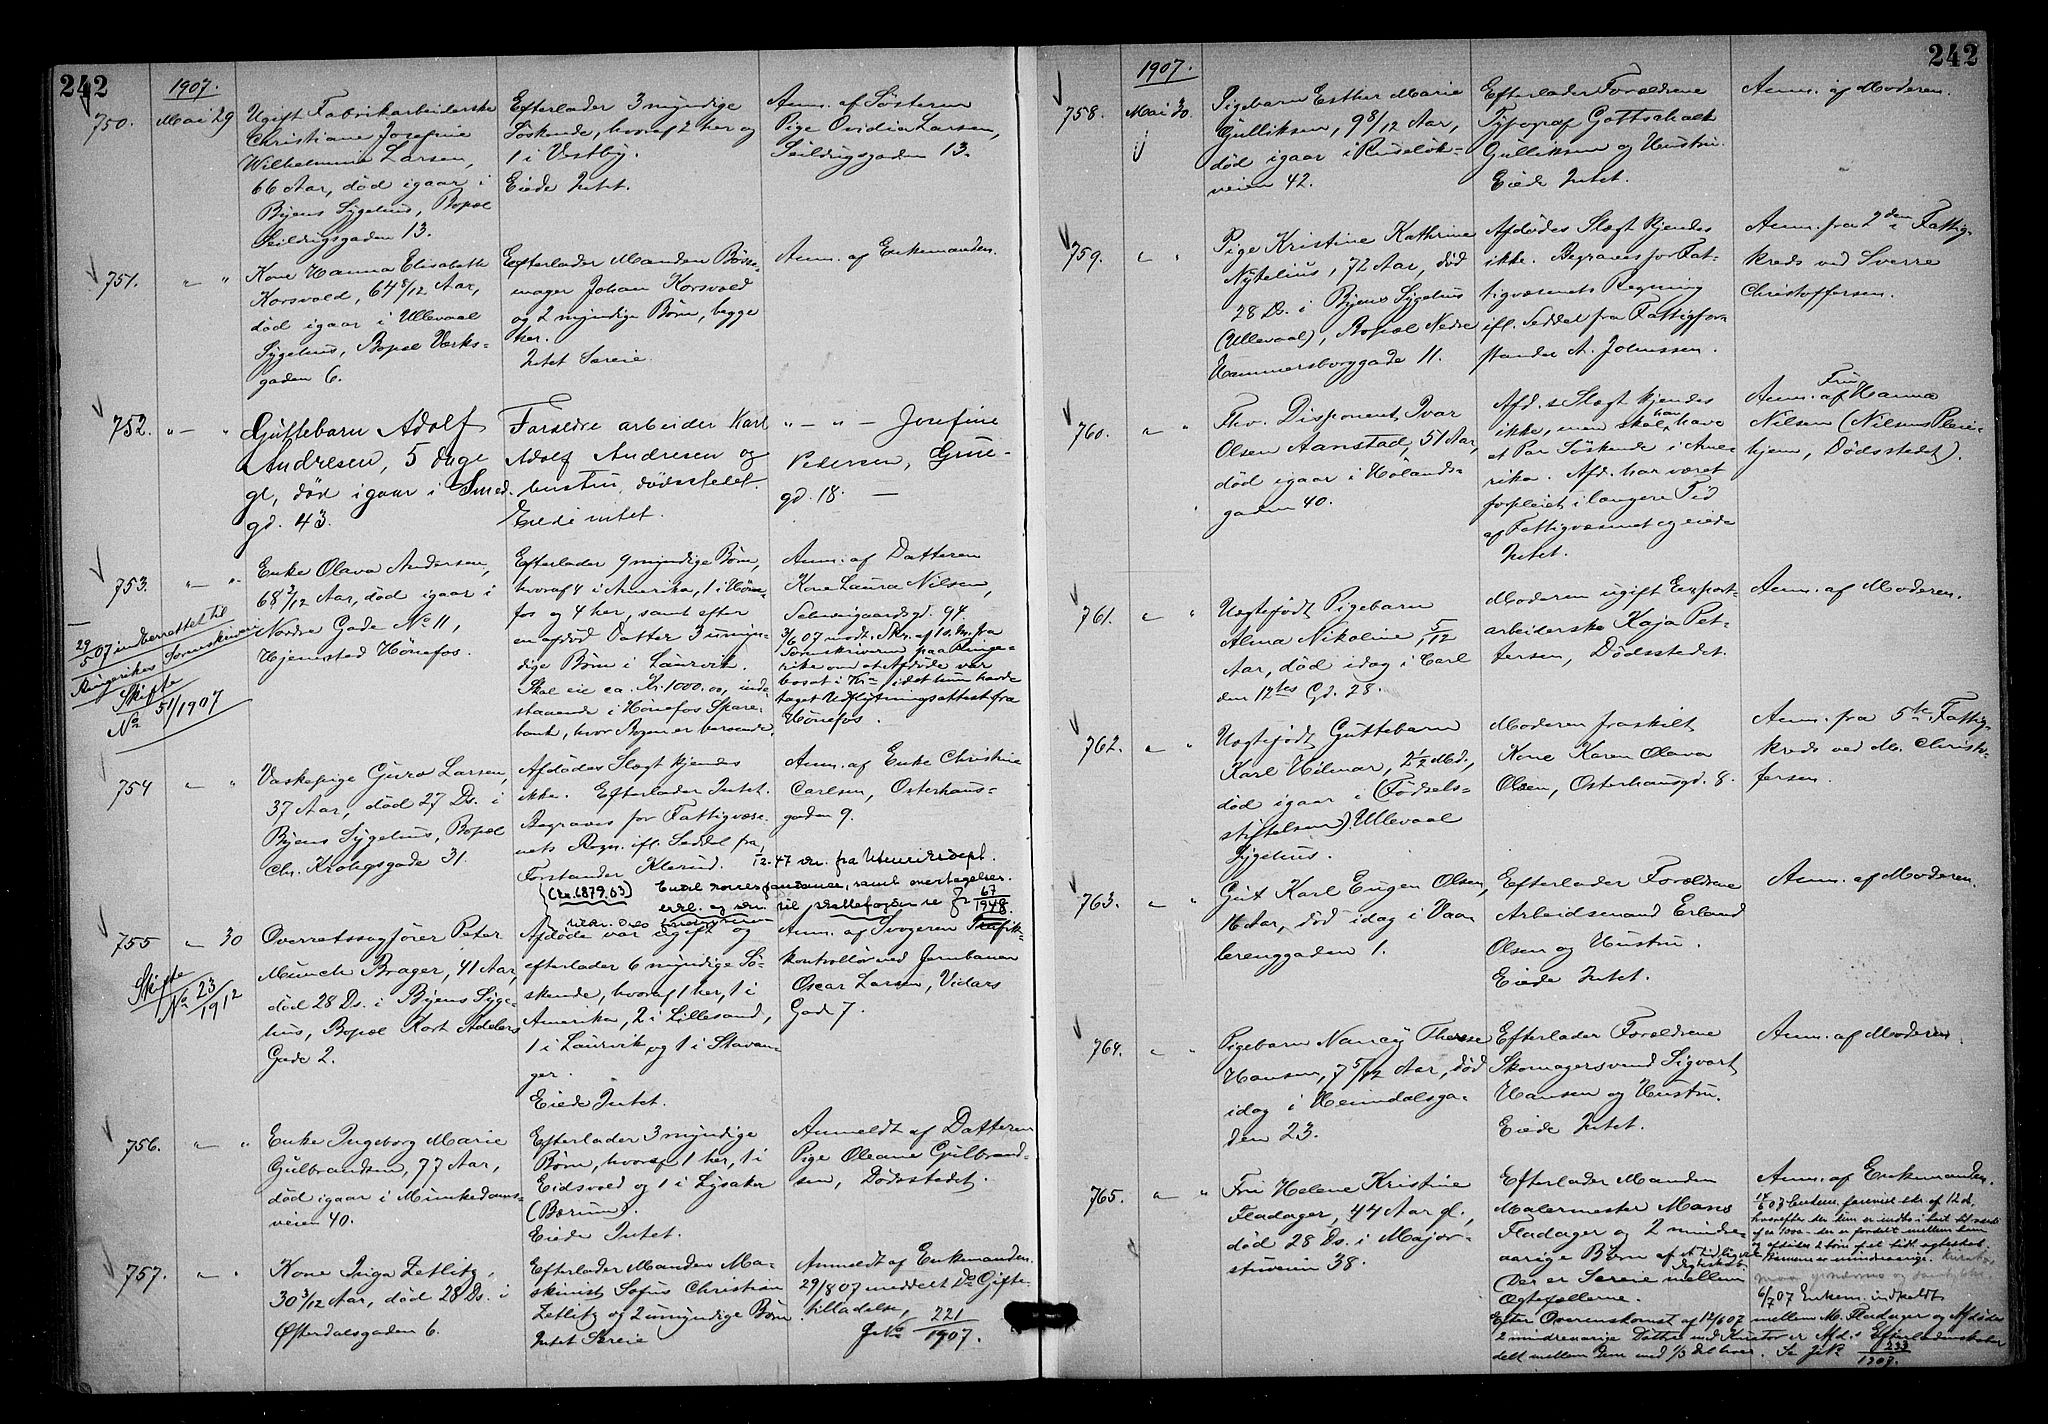 242
1907.
750.
Mai 29
Ugift Fabrikarbeiderske
Christiane Josefine
Wilhelmine Larsen,
66 Aar, død igaar i
Byens Sygehus, Bopæl
Seildugsgaden 13.
Efterlader 3 myndige
Søskende, hvoraf 2 her og
1 i Vestby.
Eiede Intet.
Anm. af Søsteren
Pige Ovidia Larsen,
Seildugsgaden 13.
751.
" "
Kone Hanna Elisabeth
Korsvold, 64 8/12 Aar,
død igaar i Ullevaal
Sygehus, Bopæl Værks-
gaden 6.
Efterlader Manden Børste-
mager Johan Korsvold
og 2 myndige Børn, begge
her.
Intet Særeie.
Anm. af Enkemanden.
752.
" — "
Guttebarn Adolf
Andresen, 5 dage
gl, død igaar i Smed.
gd. 43.
Forældre arbeider Karl
Adolf Andresen og
hustru, dødsstedet.
Eiede intet.
" — " — Josefine
Pedersen, Grue-
gd. 18. —
753.
" — "
Enke Olava Andersen,
68 2/12 Aar, død igaar i
Nordre Gade No 11,
Hjemsted Hønefos.
Efterlader 9 myndige Børn,
hvoraf 4 i Amerika, 1 i Høne-
fos og 4 her, samt efter
en afdød Datter 3 umyn-
dige Børn i Laurvik.
Skal eie ca. Kr. 1000.00, inde-
staaende i Hønefos Spare-
bank, hvor Bogen er beroende.
Anm. af Datteren
Kone Laura Nilsen,
Schweigaardsgd. 94.
3/6 07 modt. Skr. af 1 ds. fra
Sorenskriveren paa Ringe-
rike om at Afdøde var
bosat i Kra idet hun havde
taget Udflytningsattest fra
Hønefos.
29/5 07 indberettet til
Ringerikes Sorenskriveri
Skifte
No 51/1907
754
" "
Vaskepige Guro Larsen,
37 Aar, død 27 Ds. i
Byens Sygehus, Bopæl
Chr. Krohgsgade 31.
Afdødes Slægt kjendes
ikke. Efterlader Intet.
Begraves for Fattigvæse-
nets Regn. ifl. Seddel fra
Forstander Klerud.
Anm. af Enke Christine
Carlsen, Osterhaus-
gaden 9.
12.47 skr. fra Utenriksdept.
(Kr. 6879.03)
67
1948.
755
" 30
Overretssagfører Peter
Munch Brager, 41 Aar,
død 28 Ds. i Byens Syge-
hus, Bopæl Kort Adelers
Gade 2.
Afdøde var ugift og
efterlader 6 myndige Sø-
skende, hvoraf 1 her, 1 i
Amerika, 2 i Lillesand,
1 i Laurvik og 1 i Stavan-
ger.
Eiede Intet.
Anm. af Svogeren Trafik-
kontrollør ved Jernbanen
Oscar Larsen, Vidars
Gade 7.
Skifte
No 23
1912
756.
" "
Enke Ingeborg Marie
Gulbrandsen, 77 Aar,
død igaar i Munkedams-
veien 40.
Efterlader 3 myndige
Børn, hvoraf 1 her, 1 i
Eidsvold og 1 i Lysaker
(Bærum).
Eiede Intet.
Anmeldt af Datteren
Pige Oleane Gulbrand-
sen, Dødsstedet.
757.
" "
Kone Inga Zetlitz,
30 3/12 Aar, død 28 Ds. i
Østerdalsgaden 6.
Efterlader Manden Ma-
skinist Sofus Christian
Zetlitz og 2 umyndige Børn
Intet Særeie
Anmeldt af Enkemanden.
29/8 07 meddelt Do Gifte-
tilladelse,
J.No 221
1907.
242
1907.
758.
Mai 30.
Pigebarn Esther Marie
Gulliksen, 9 8/12 Aar,
død igaar i Ruseløk-
veien 42.
Efterlader Forældrene
Typograf Gottschalk
Gulliksen og Hustru.
Eiede Intet.
Anm. af Moderen.
759.
" "
Pige Kristine Kathrine
Nytelius, 72 Aar, død
28 Ds. i Byens Sygehus
(Ullevaal), Bopæl Nedre
Hammersborggade 11.
Afdødes Slægt kjendes
ikke. Begraves for Fat-
tigvæsenets Regning
ifl. Seddel fra Fattigfor-
stander A. Johnssen.
Anm. fra 2den Fattig-
kreds ved Sverre
Christoffersen.
760.
" "
Fhv. Disponent Ivar
Olsen Aanstad, 51 Aar,
død igaar i Holands-
gaden 40.
Afd.s Slægt kjendes
ikke, men skal han have
et Par Søskende i Ame-
rika. Afd. har været
forpleiet i længere Tid
af Fattigvæsenet og eiede
Intet.
Anm. af Fru Hanna
Nilsen (Nilsens Pleie-
hjem, Dødsstedet).
761.
" "
Uægtefødt Pigebarn
Alma Nikoline 5/12
Aar, død idag i Carl
den 12tes Gd. 28.
Moderen ugift Export-
arbeiderske Kaja Pet-
tersen, Dødsstedet.
Anm. af Moderen.
762.
" "
Uægtefødt Guttebarn
Karl Hilmar, 2 1/2 Md.,
død igaar i (Fødsels-
stiftelsen) Ullevaal
Sygehus.
Moderen fraskilt
Kone Karen Olava
Olsen, Osterhausgd. 8.
Anm. fra 5te Fattig-
kreds ved M. Christo-
fersen.
763.
" "
Gut Karl Eugen Olsen,
16 Aar, død idag i Vaa-
lerenggaden 1.
Efterlader Forældrene
Arbeidsmand Erland
Olsen og Hustru.
Eiede Intet.
Anm. af Moderen.
764.
" "
Pigebarn Nancy Therese
Hansen, 7 5/12 Aar, død
idag i Heimdalsga-
den 23.
Efterlader Forældrene
Skomagersvend Sigvart
Hansen og Hustru.
Eiede Intet.
Anm. af Moderen.
765.
" "
Fru Helene Kristine
Fladager, 44 Aar gl.,
død 28 Ds. i Major-
stuveien 38.
Efterlader Manden
Malermester Mons
Fladager og 2 minde-
aarige Børn af et tidligere
Ægteskab.
Der er Særeie mellem
Ægtefællerne.
Anm. af Enkemanden.
6/7 07 Enkem. indkaldt
Efter Overenskomst af 12/6 07 mellem M. Fladager og Afdødes
2 mindreaarige Døtre med Kurator er Afd.s Efterladenskaber
delt mellem dem med 1/3 til hver. Se J.No 233
1907.